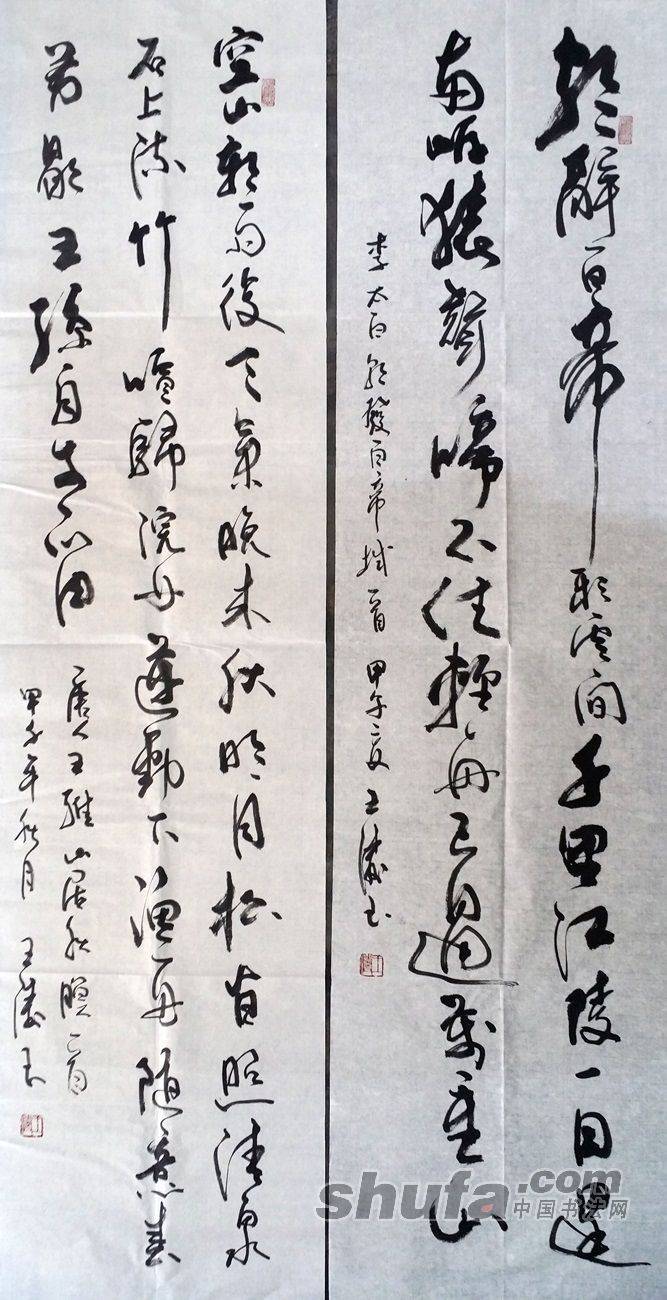 朝辭白帝彩雲间千里江陵一日還
兩岸猿聲啼不住輕舟已過萬重山
李太白朝發白帝城一首 甲午夏 王玉
空山新雨後天氣晚来秋明月松间照清泉
石上流竹喧歸浣女蓮動下漁舟随意春
芳歇王孫自可留
唐人王維山居秋暝一首
甲午年秋月 王玉
shufa.com
中国书法网